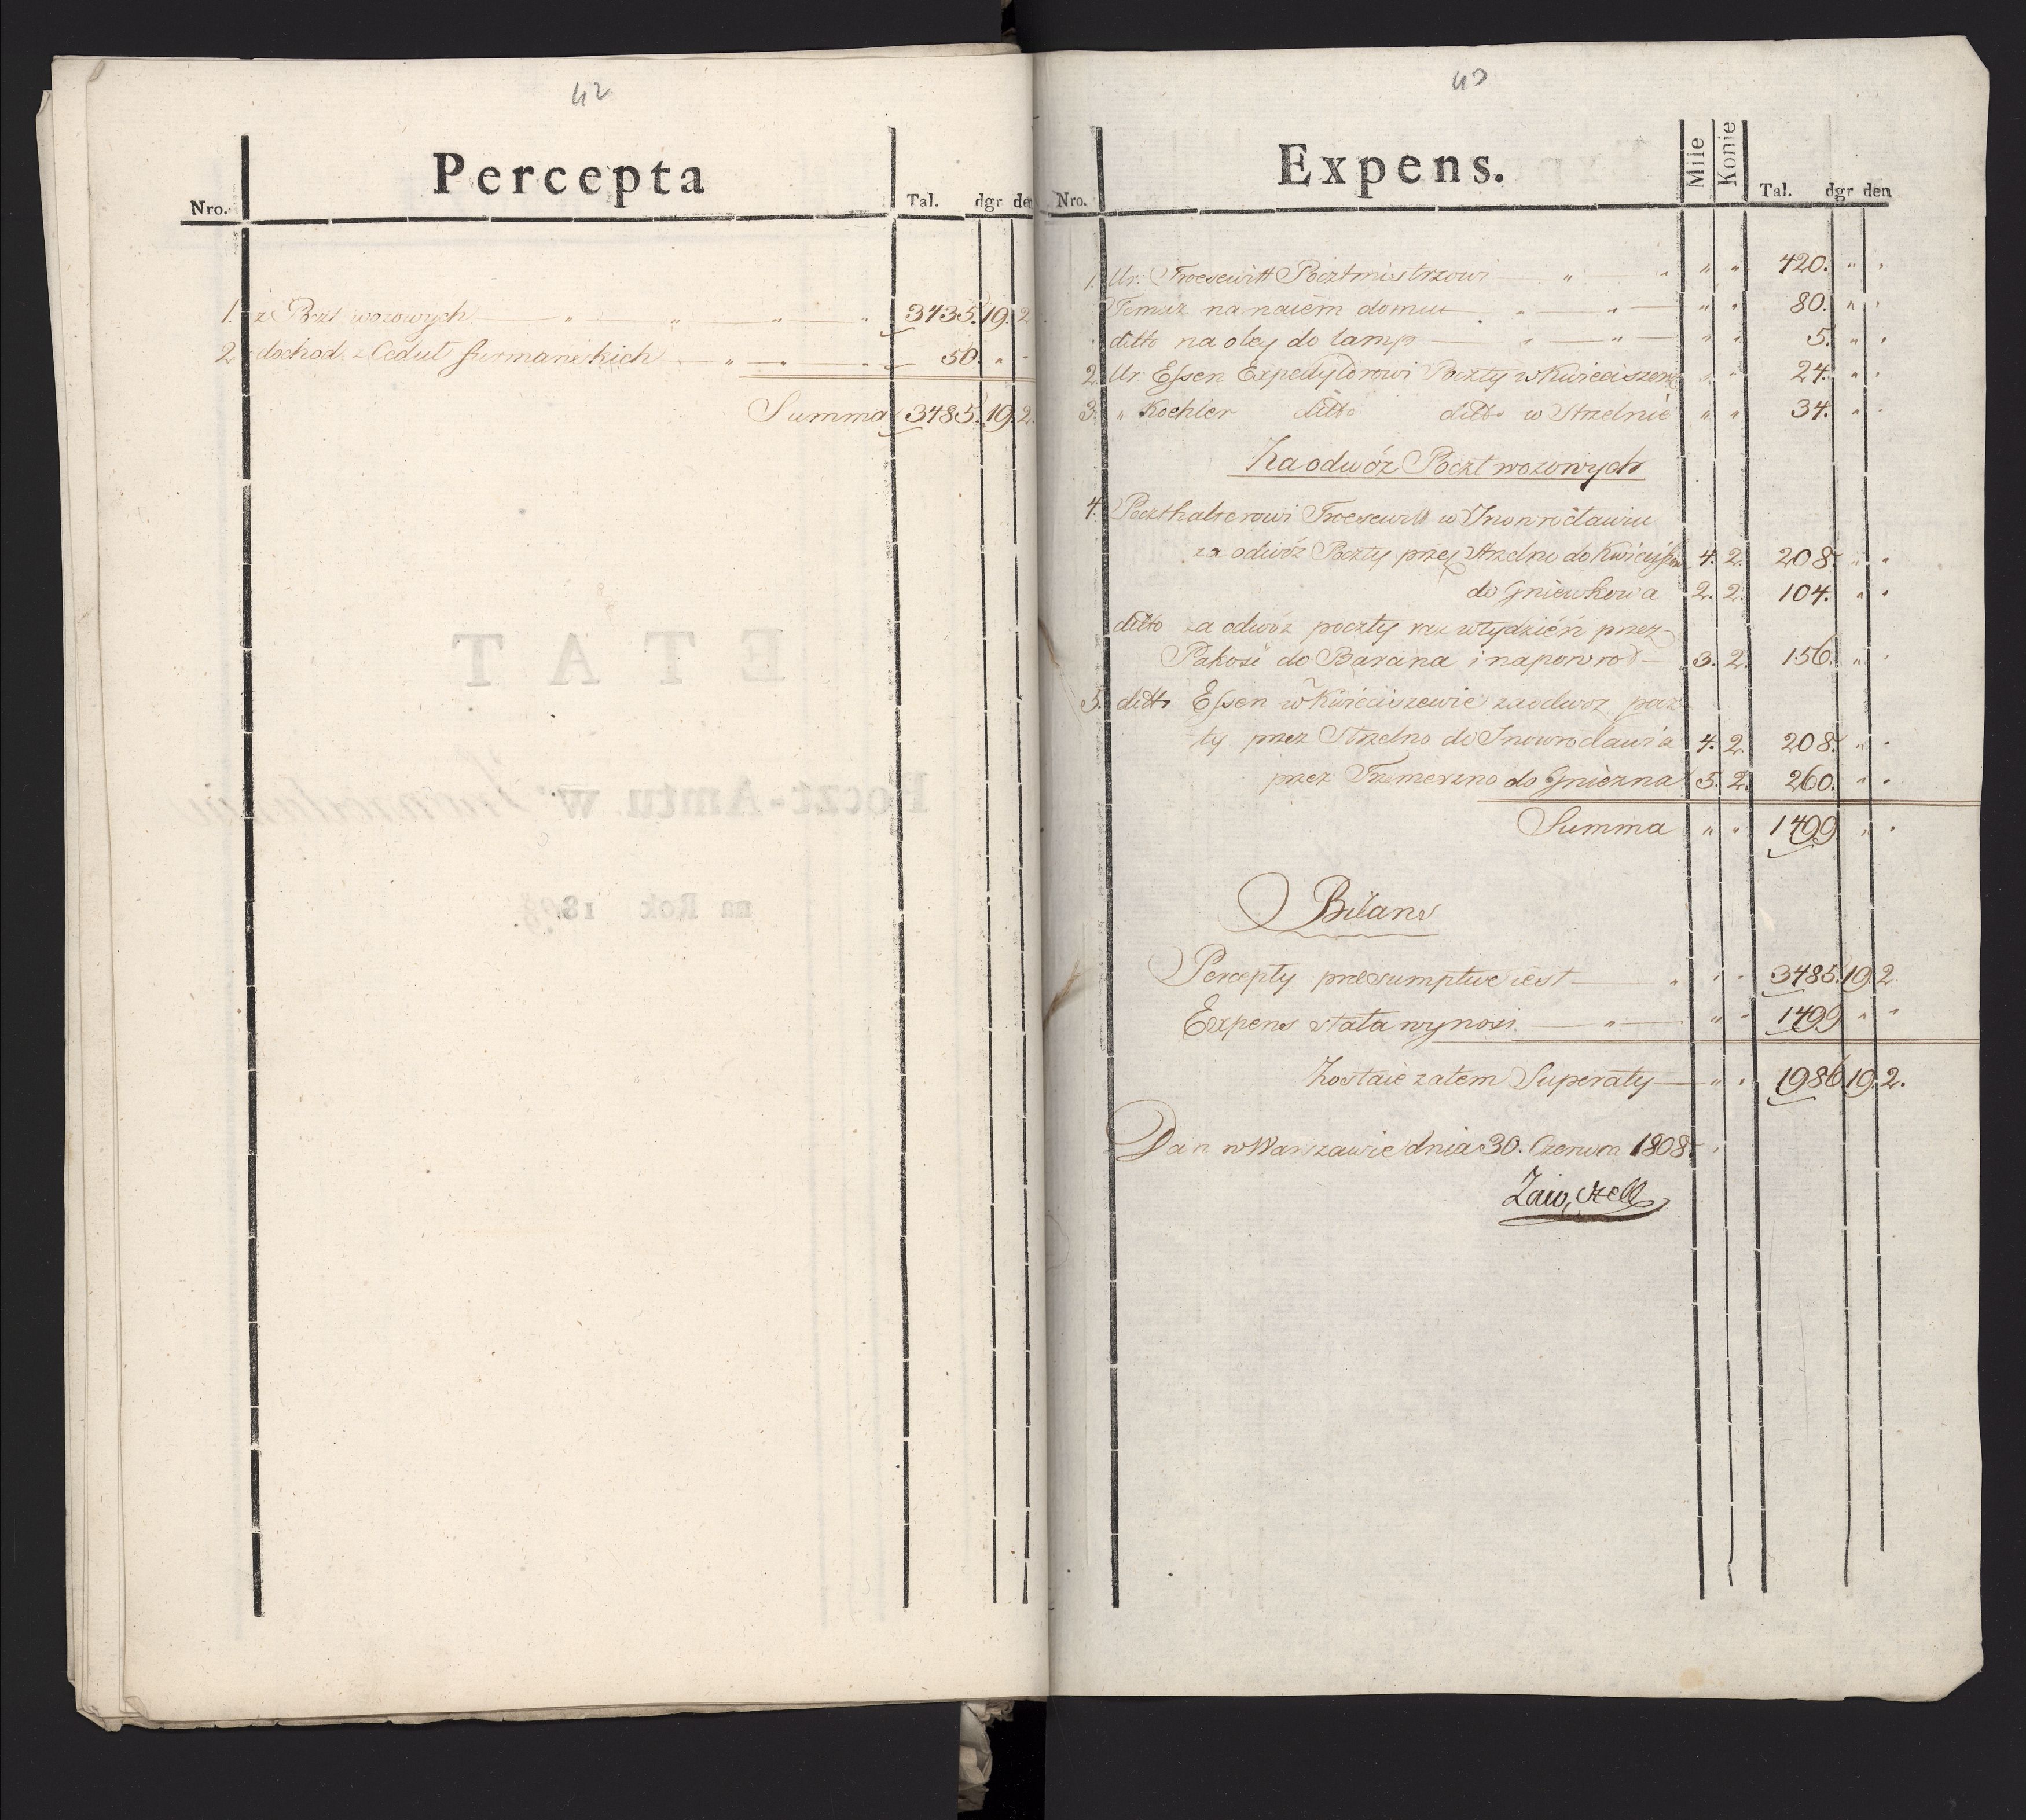 42
Percepta
Nro. Tal. dgr den
1. z Poczt wozowych — „ — „ — „ — „ 3435. 19. 2
2. dochod z Cedut furmanskich — „ — „ — „ 50. „ „
Summa 3485. 19. 2.
43
Expens.
Nro. Mile Konie Tal. dgr den
1. Ur: Troesewitt Pocztmistrzowi — „ „ „ „ 420. „ „
Temuz na naiem domu — „ — „ — „ „ 80. „ „
ditto na oley do lamp — „ — „ — „ „ 5. „ „
2. Ur Essen Expedytorowi Poczty w Kwieciszewie „ „ 24. „ „
3. „ Koehler ditto ditto w Strzelnie „ „ 34. „ „
Za odwóz Poczt wozowych
4. Poczthalterowi Troesewitt w Inowrocławiu
za odwóz Poczty przez Strzelno do Kwieciszewa 4. 2. 208. „ „
do Gniewkowa 2. 2. 104. „ „
ditto za odwóz poczty raz wtydzień przez
Pakość do Barcina i napowrod — 3. 2. 156. „ „
5. ditto Essen w Kwieciszewie za odwoz pocz
ty przez Strzelno do Inowrocławia 4. 2. 208. „ „
przez Trzemeszno do Gniezna 5. 2. 260. „ „
Summa „ „ 1499 „ „
Bilans
Percepty presumptive iest — „ „ „ 3485. 19. 2
Expens stała wynosi — „ — „ „ 1499 „ „
Zostaie zatem Superaty — „ „ 1986. 19. 2.
Dan w Warszawie dnia 30. Czerwca 1808.